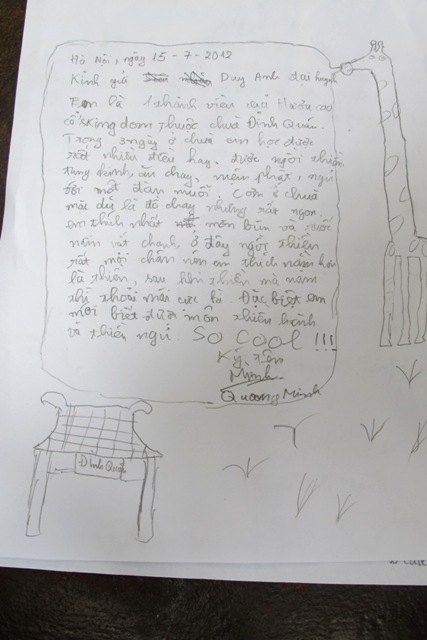 Hà Nội, ngày 15-7-2012
Kính gửi Duy Anh đại huynh
Em là 1 thành viên của Hươu cao
cổ's King dom thuộc chùa Đình Quán.
Trong 3 ngày ở chùa em học được
rất nhiều điều hay, được ngồi thiền,
tụng kinh, ăn chay, niệm phật, ngủ
với một đàn muỗi. Cơm ở chùa
mặc dù là đồ chay nhưng rất ngon.
em thích nhất món bún và nước
nấm vắt chanh, ở đây ngồi thiền
rất mỏi chân nên em thích nằm hơn
là thiền, sau khi thiền mà nằm
thì thoải mái cực kì. Đặc biệt em
mới biết được môn thiền hành
và thiền ngủ. SO COOL !!!
Ký tên
Minh
Quang Minh
Đình Quán